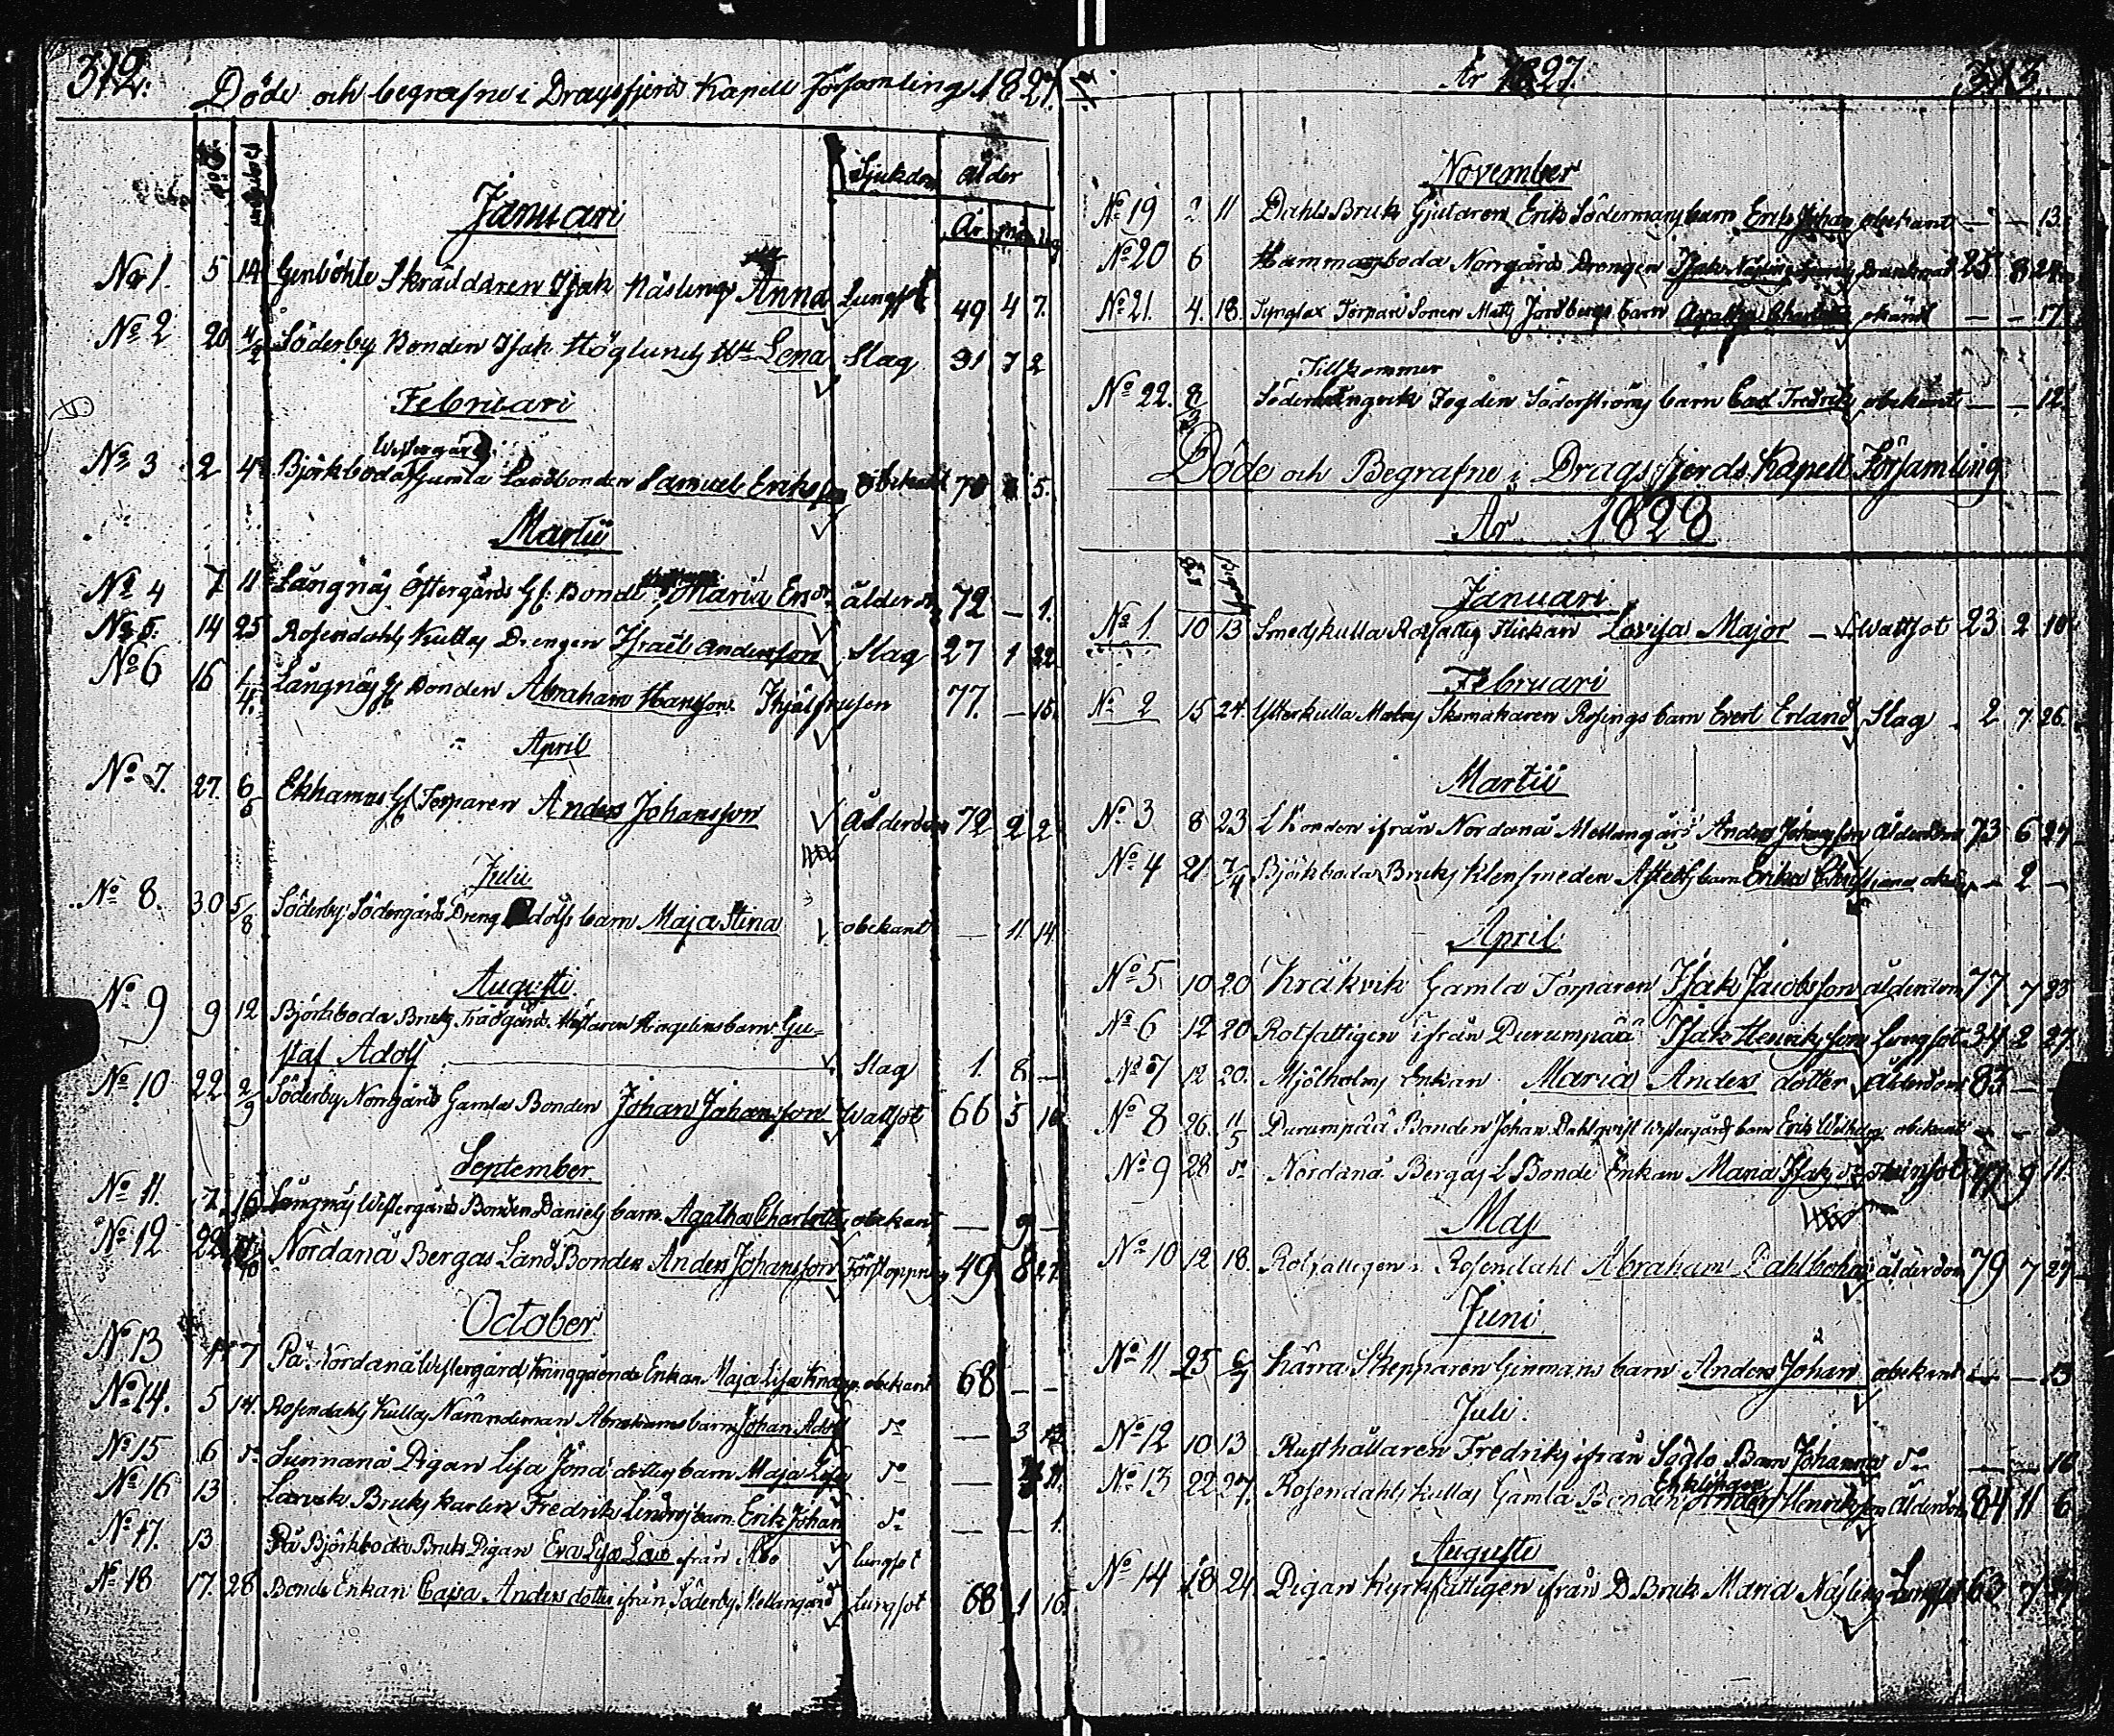 312.
Döde och begrafne i Dragsfjerds Kapell Församling 1827.
Död begrafven
Sjukdom ålder
År
Januari
No 1. 5 14 Genböhle Skräddaren Isak Näslings Anna Lungsot 49 4 7.
No 2 20 4/2 Söderby Bonden Isak Höglunds Lena Slag 31 7 2
Februari
Westergård
No 3 2 4 Björkboda gamla Landbonden Samuel Eriksson obekant 70 5.
Martii
No 4 7 11 Långnäs Östergårds Gl: Bonde Maria Ersdr ålderdom 72 — 1.
No 5. 14 25 Rosendahls Kullas Drengen Israel Andersson Slag 27 1 22
No 6 16 1/4. Långnäs Gl Bonden Abraham Hansson 77. — 15.
April
No 7. 27. 6/5 Ekhamns Gl Torparen Anders Johansson ålderdom 72 2 2
Julii
No 8. 30 5/8 Söderby Södergårds Dreng Adolfs barn Maja Stina obekant — 11 14
Augusti
No 9 9 12 Björkboda Bruks Trädgårds Mästaren barn Gu=
staf Adolf Slag 1. 8 —
No 10 22. 2/9 Söderby Norrgårds Gamla Bonden Johan Johansson Wattsot 66 5 16
September
No 11. 7. 16 Långnäs Westergårds Bonden Daniels barn Agatha Charlotta obekant — 9 —
No 12 22 Nordanå Bergas Land Bonden Anders Johansson Förstoppning 49 8 27
October
No 13 7 På Nordanå Westergård Kringgående Enkan Maja Lisa obekant 68 — —
No 14. 5 14. Rosendahls Kullas Nämndeman Abrahams barn Johan Adolf do — 3
No 15 6 do Sunnanå Pigan Lisa Jona dotters barn Maja Lisa do —
No 16 13 Bruks Karlen Fredriks barn Erik Johan do — — 1.
No 17. 13 På Björkboda Bruk Pigan Eva Lisa ifrån Åbo lungsot
No 18 17. 28 Bonde Enkan Cajsa Anders dotter ifrån Söderby Mellangård lungsot 68 1 16.
År 1827.
313.
November
No 19 2 11 Dahls Bruk Gjutaren Erik Södermans barn Erik Johan obekant — — 13.
No 20 6 Hammarsboda Norrgårds Drengen Isak Näsling 25 8 24
No 21. 4. 18. Tynglax Torpare Sonen Matts Jordbergs barn Agatha Charlotta okänd — — 17
Tillkommer
No 22. 8 Söderlångvik Fogden Söderströms barn Carl Fredrik obekant — — 12.
Döde och Begrafne i Dragsfjerds Kapell Församling
År 1828
Januari
No 1 10 13 Smedskulla Rotfattig Flickan Lovisa Major — Wattsot 23 2 10
Februari
No 2 15 24. Ytterkulla Skomakaren Rosings barn Evert Erland Slag 2 7 26.
Martii
No 3 8 23 L Bonden ifrån Nordanå Mellangård Anders Johansson ålderdom 73 6 27
No 4 21 7/4 Björkboda Bruks Klensmeden barn Erika Christina — 2 —
April
No 5 10 20 Kråkvik Gamla Torparen Isak Jacobsson ålderdom 77. 7 23
No 6 12 20. Rotfattigen ifrån Durumpää Isak Henriksson Lungsot 34 2 27.
No 7 12 20. Mjösholms Enkan Maria Anders dotter ålderdom 83 —
No 8 26. 11/5 Durumpää Bonden Johan Dahlqvist Westergårds barn Erik Wilhelm obekant — —
No 9 28 do Nordanå Bergas L Bonde Enkan Maria Isaks dr 9 11.
Maj
No 10 12 18. Rotfattigen i Rosendahl Abraham Dahlbo ålderdom 79 7 27
Juni
No 11 25 6/7 Kärra Skepparen Ginmans barn Anders Johan obekant — — 13
Juli.
No 12 10 13 Rusthållaren Fredriks ifrån Söglo Barn Johanna do — — 16
Enklingen
No 13 22 27. Rosendahls Kullas Gamla Bonden Anders Henriksson Ålderdom 84 11 6
Augusti
No 14 18 24. Pigan Kyrkfattigen ifrån D Bruk Maria Näsling Lungsot 63 7